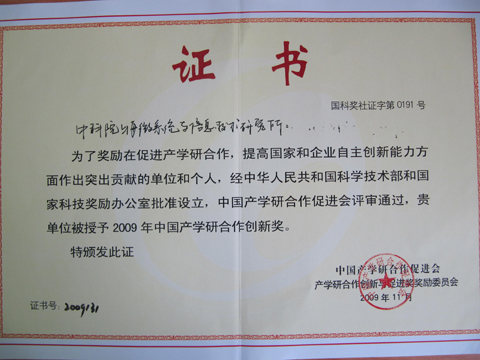 证书
国科奖社证字第0191号
中科院上海微系统与信息技术研究所：
为了奖励在促进产学研合作，提高国家和企业自主创新能力方
面作出突出贡献的单位和个人，经中华人民共和国科学技术部和国
家科技奖励办公室批准设立，中国产学研合作促进会评审通过，贵
单位被授予2009年中国产学研合作创新奖。
特颁发此证
中国产学研合作促进会
产学研合作创新与促进奖奖励委员会
2009年11月
证书号：2009131